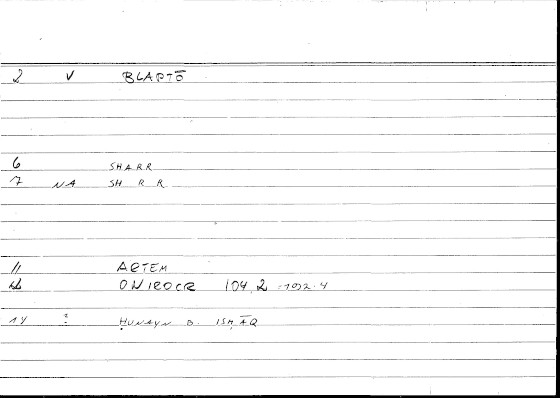 2 V BLAPTŌ
6 SHARR
7 NA SH R R
11 ARTEM
ONIROCR 104, 2 - 192.4
14 : ḤUNAYN B. ISḤĀQ